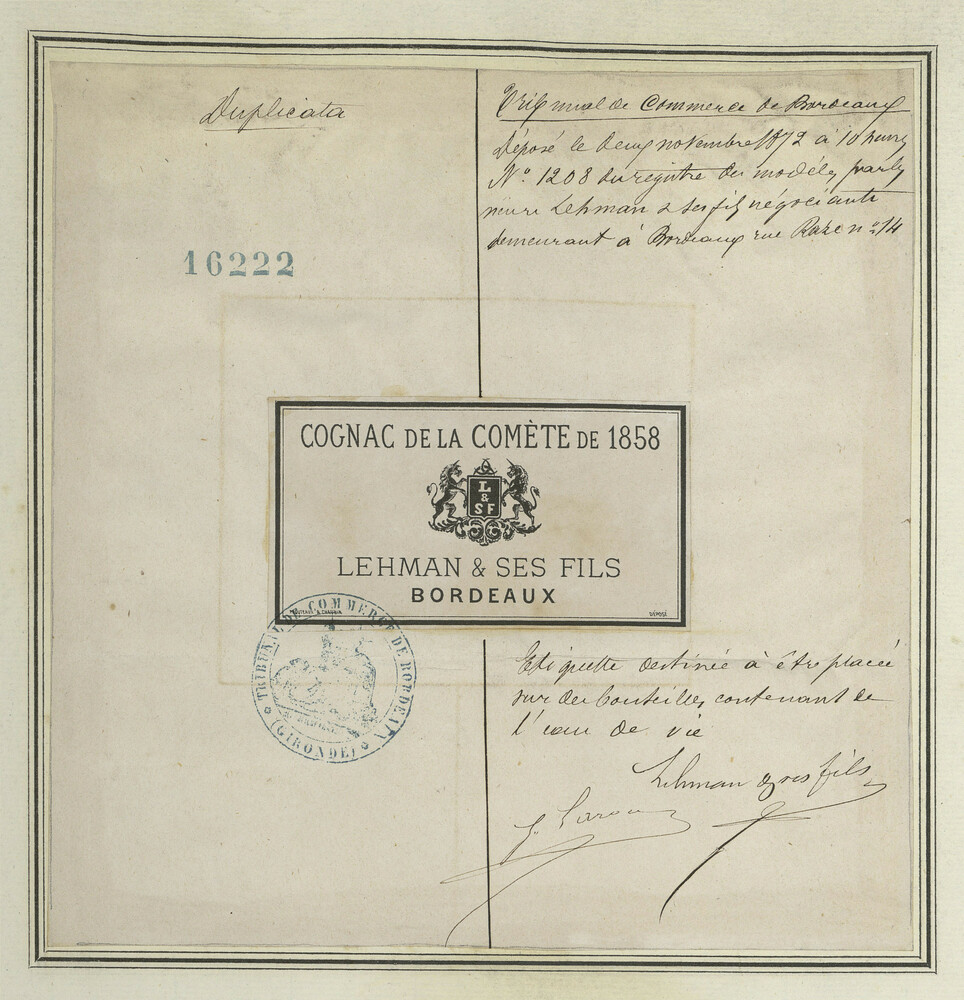 Duplicata
16222
Tribunal de Commerce de Bordeaux
Déposé le deux novembre 1872 à 10 heures
No. 1208 du registre des modèles par les
sieurs Lehman & ses fils négociants
demeurant à Bordeaux rue Raze no. 14
COGNAC DE LA COMÈTE DE 1858
L
&
SF
LEHMAN & SES FILS
BORDEAUX
DÉPOSÉ
TRIBUNAL DE COMMERCE DE BORDEAUX
(GIRONDE)
Etiquette destinée à être placée
sur des bouteilles contenant de
l'eau de vie
Lehman & ses fils